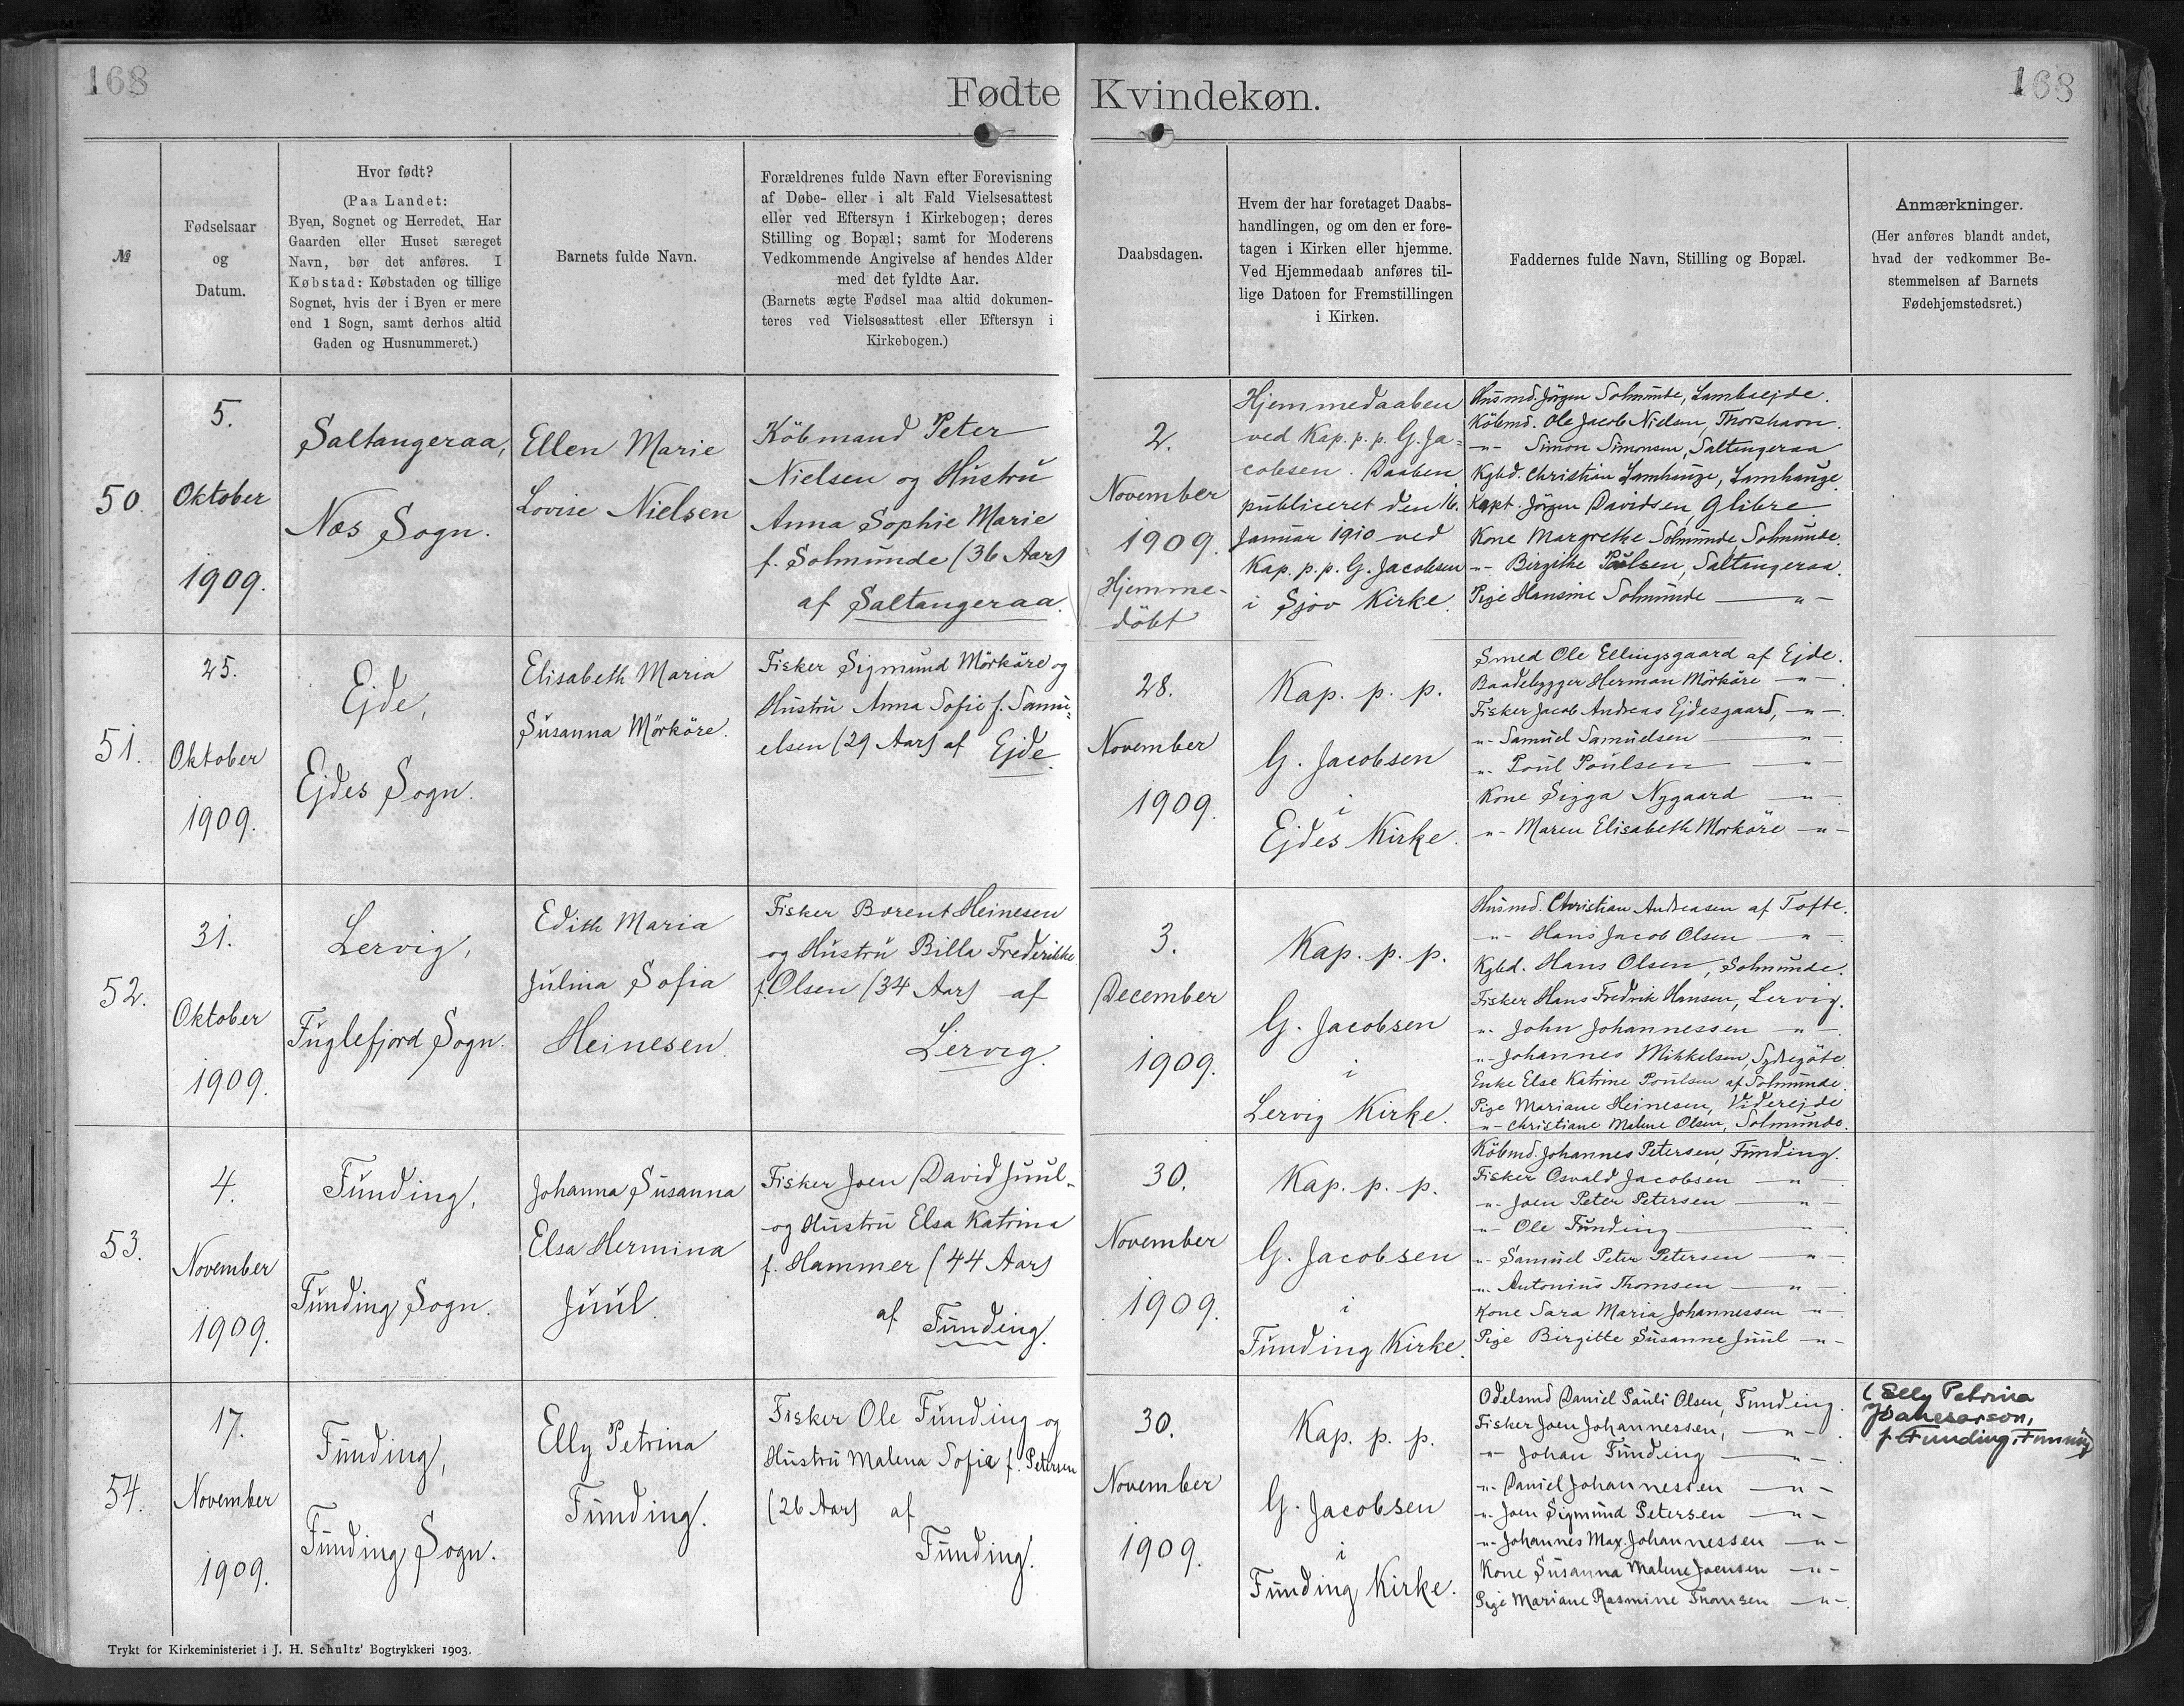 168
Fødte Kvindekøn.
168
№
Fødselsaar
og
Datum.
Hvor født?
(Paa Landet:
Byen, Sognet og Herredet. Har
Gaarden eller Huset særeget
Navn, bør det anføres. I
Købstad: Købstaden og tillige
Sognet, hvis der i Byen er mere
end 1 Sogn, samt derhos altid
Gaden og Husnummeret.)
Barnets fulde Navn.
Forældrenes fulde Navn efter Forevisning
af Døbe- eller i alt Fald Vielsesattest
eller ved Eftersyn i Kirkebogen; deres
Stilling og Bopæl; samt for Moderens
Vedkommende Angivelse af hendes Alder
med det fyldte Aar.
(Barnets ægte Fødsel maa altid dokumen-
teres ved Vielsesattest eller Eftersyn i
Kirkebogen.)
Daabsdagen.
Hvem der har foretaget Daabs-
handlingen, og om den er fore-
tagen i Kirken eller hjemme.
Ved Hjemmedaab anføres til-
lige Datoen for Fremstillingen
i Kirken.
Faddernes fulde Navn, Stilling og Bopæl.
Anmærkninger.
(Her anføres blandt andet,
hvad der vedkommer Be-
stemmelsen af Barnets
Fødehjemstedsret.)
50.
5.
Oktober
1909.
Saltangeraa,
Nes Sogn.
Ellen Marie
Lovise Nielsen
Köbmand Peter
Nielsen og Hustru
Anna Sophie Marie
f. Solmunde (36 Aar)
af Saltangeraa.
2.
November
1909.
Hjemme-
döbt
Hjemmedaaben
ved Kap. p. p. G. Ja-
cobsen. Daaben
publiceret den 16.
Januar 1910 ved
Kap. p. p. G. Jacobsen
i Sjov Kirke.
Husmd. Jörgen Solmunde, Lambaejde.
Köbmd. Ole Jacob Nielsen, Thorshavn.
-"- Simon Simonsen, Saltangeraa
Kgbd. Christian Lamhauge, Lamhauge.
Kapt. Jörgen Davidsen, Glibre
Kone Margrethe Solmunde Solmunde.
-"- Birgithe Poulsen, Saltangeraa.
Pige Hansine Solmunde -"-
51.
25.
Oktober
1909.
Ejde,
Ejdes Sogn.
Elisabeth Maria
Susanna Mörköre.
Fisker Sigmund Mörköre og
Hustru Anna Sofie f. Samu-
elsen (29 Aar) af Ejde.
28.
November
1909.
Kap. p. p.
G. Jacobsen
i
Ejdes Kirke.
Smed Ole Ellingsgaard af Ejde.
Baadebygger Herman Mörköre -"-.
Fisker Jacob Andreas Ejdesgaard, -"-.
-"- Samuel Samuelsen -"-
-"- Poul Poulsen -"-
Kone Sigga Nygaard -"-
-"- Maren Elisabeth Mörköre -"-
52.
31.
Oktober
1909.
Lervig,
Fuglefjord Sogn.
Edith Maria
Julina Sofia
Heinesen.
Fisker Berent Heinesen
og Hustru Billa Frederikke
f. Olsen (34 Aar) af
Lervig.
3.
December
1909.
Kap. p. p.
G. Jacobsen
i
Lervig Kirke.
Husmd. Christian Andreasen af Tofte.
-"- Hans Jacob Olsen -"-.
Kgbd. Hans Olsen, Solmunde.
Fisker Hans Fredrik Hansen, Lervig.
-"- John Johannessen -"-.
-"- Johannes Mikkelsen, Sydregöte.
Enke Else Katrine Poulsen af Solmunde.
Pige Mariane Heinesen, Viderejde
-"- Christiane Malene Olsen, Solmunde.
53.
4.
November
1909.
Funding,
Funding Sogn.
Johanna Susanna
Elsa Hermina
Juul.
Fisker Joen David Juul
og Hustru Elsa Katrina
f. Hammer (44 Aar)
af Funding.
30.
November
1909.
Kap. p. p.
G. Jacobsen
i
Funding Kirke.
Köbmd. Johannes Petersen, Funding.
Fisker Osvald Jacobsen -"-
-"- Joen Peter Petersen -"-
-"- Ole Funding -"-
-"- Samuel Peter Petersen -"-
-"- Antonius Thomsen -"-
Kone Sara Maria Johannessen -"-
Pige Birgitte Susanne Juul -"-
54.
17.
November
1909.
Funding,
Funding Sogn.
Elly Petrina
Funding.
Fisker Ole Funding og
Hustru Malena Sofie f. Petersen
(26 Aar) af
Funding.
30.
November
1909.
Kap. p. p.
G. Jacobsen
i
Funding Kirke.
Odelsmd Daniel Pauli Olsen, Funding.
Fisker Joen Johannessen, -"-.
-"- Johan Funding -"-.
-"- Daniel Johannessen -"-
-"- Joen Sigmund Petersen -"-
-"- Johannes Max. Johannessen -"-
Kone Susanna Malene Joensen -"-
Pige Mariane Rasmine Thomsen -"-.
(Elly Petrina
f. Funding, Funning)
Trykt for Kirkeministeriet i J. H. Schultz' Bogtrykkeri 1903.